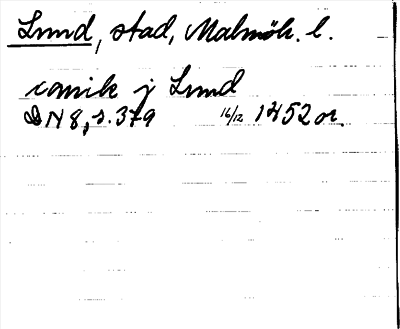 Lund, stad, Malmöh. l.
canik j Lund
DN 8, s. 379 16/12 1452 or.